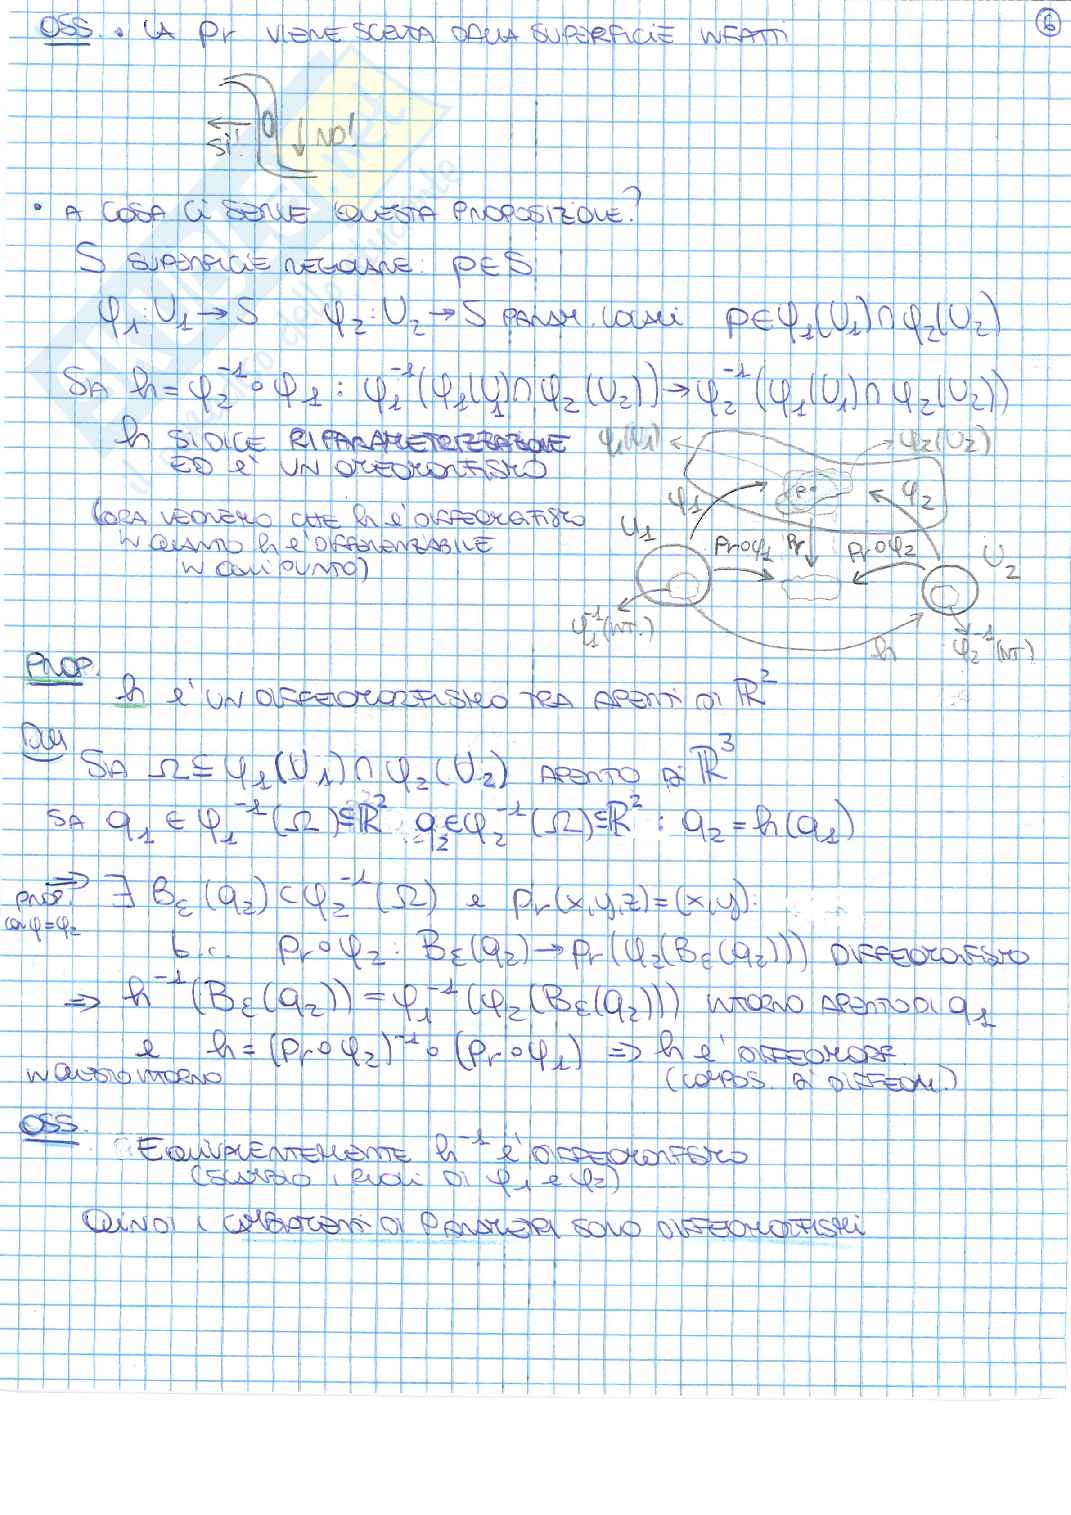 OSS. • LA pr VIENE SCELTA DALLA SUPERFICIE INFATTI
6
SI!
NO!
• A COSA CI SERVE QUESTA PROPOSIZIONE?
S SUPERFICIE REGOLARE p∈S
φ₁: U₁→S φ₂: U₂→S param. locali p∈φ₁(U₁)∩φ₂(U₂)
SIA h=φ₂⁻¹∘φ₁ : φ₁⁻¹(φ₁(U₁)∩φ₂(U₂))→φ₂⁻¹(φ₁(U₁)∩φ₂(U₂))
h SI DICE RIPARAMETRIZZAZIONE
ED È UN OMEOMORFISMO
(ORA VEDREMO CHE h È DIFFEOMORFISMO
IN QUANTO h È DIFFERENZIABILE
IN OGNI PUNTO)
φ₁(U₁) φ₂(U₂)
p
φ₁ φ₂
U₁ pr∘φ₁ pr pr∘φ₂ U₂
φ₁⁻¹(INT.) h φ₂⁻¹(INT)
PROP.
h È UN DIFFEOMORFISMO TRA APERTI DI ℝ²
DIM
SIA Ω⊆φ₁(U₁)∩φ₂(U₂) APERTO DI ℝ³
SIA q₁∈φ₁⁻¹(Ω)⊆ℝ² q₂∈φ₂⁻¹(Ω)⊆ℝ² : q₂=h(q₁)
⇒ ∃ Bε(q₂)⊂φ₂⁻¹(Ω) e pr(x,y,z)=(x,y):
prop.
con φ=φ₂
t.c. pr∘φ₂: Bε(q₂)→pr(φ₂(Bε(q₂))) DIFFEOMORFISMO
⇒ h⁻¹(Bε(q₂))=φ₁⁻¹(φ₂(Bε(q₂))) INTORNO APERTO DI q₁
e h=(pr∘φ₂)⁻¹∘(pr∘φ₁) ⇒ h È DIFFEOMORF.
IN QUESTO INTORNO (COMPOS. DI DIFFEOM.)
OSS.
EQUIVALENTEMENTE h⁻¹ È DIFFEOMORFISMO
(SCAMBIO I RUOLI DI φ₁ e φ₂)
QUINDI I CAMBIAMENTI DI PARAMETRI SONO DIFFEOMORFISMI